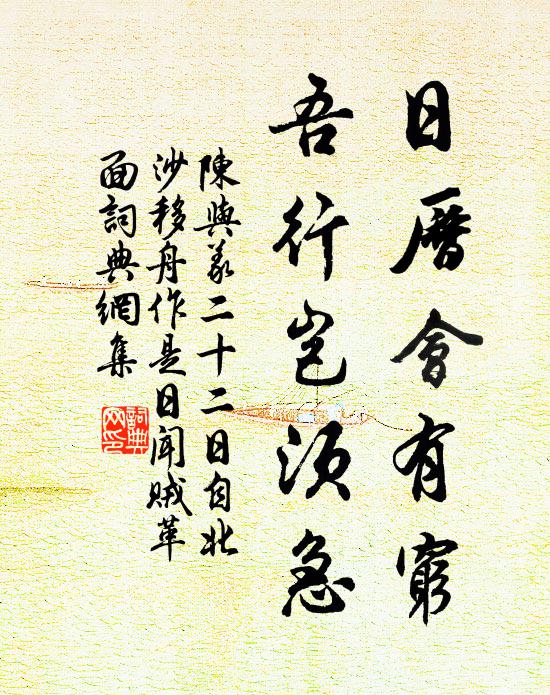 日曆會有窮
吾行豈須急
陳與義二十二日自北
沙移舟作是日聞賊革
面詞典網集
詞典
网印